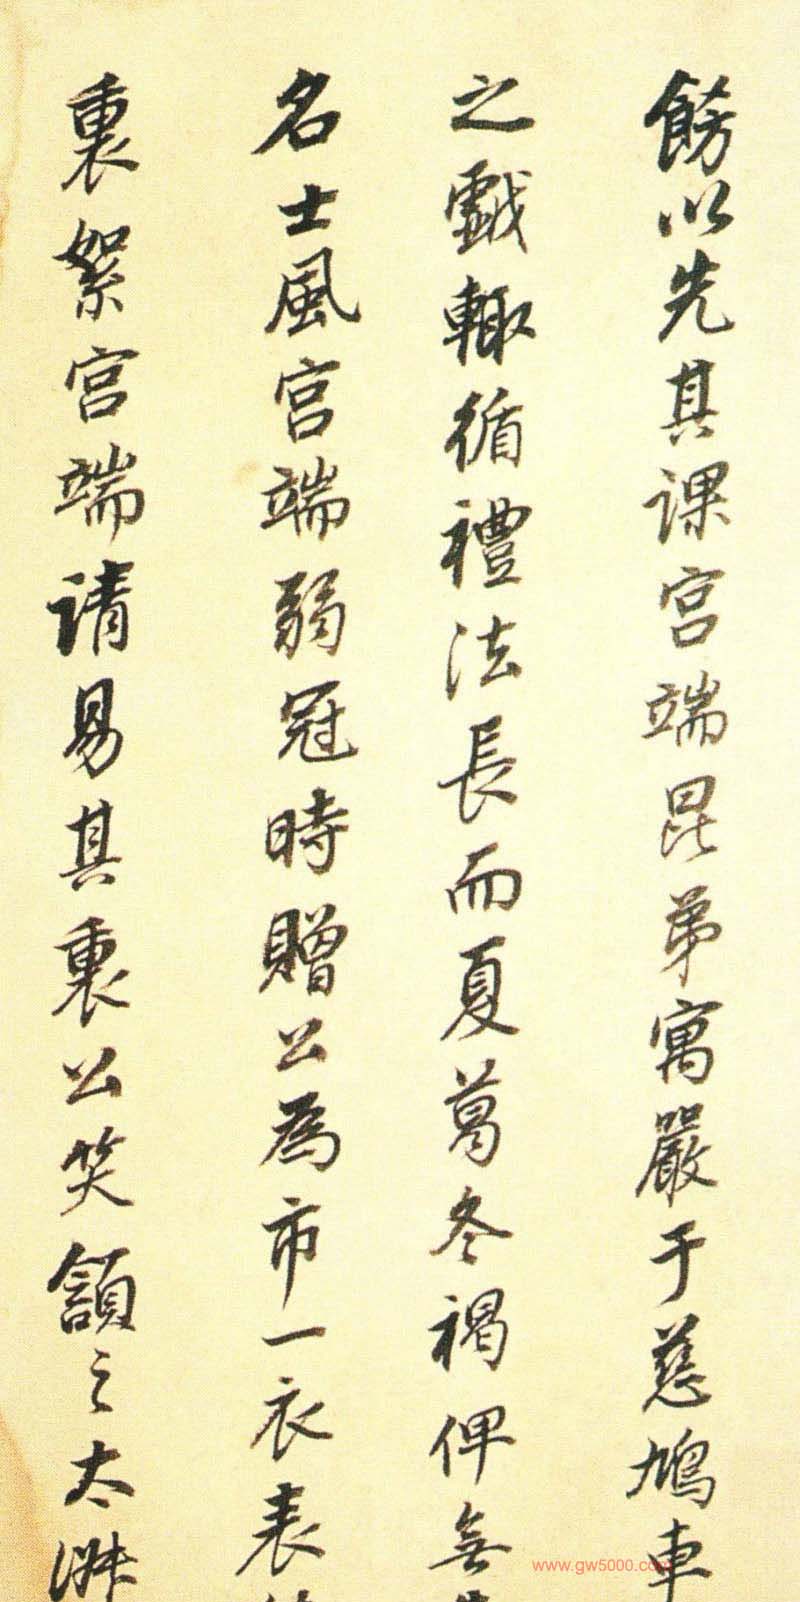 餝以先其課宮端昆弟寓嚴于慈鳩車
之戲輒循禮法長而夏葛冬褐俾無
名士風宮端弱冠時贈公為市一衣表
裏絮宮端請易其裏公笑頷之太淑
www.gw5000.com